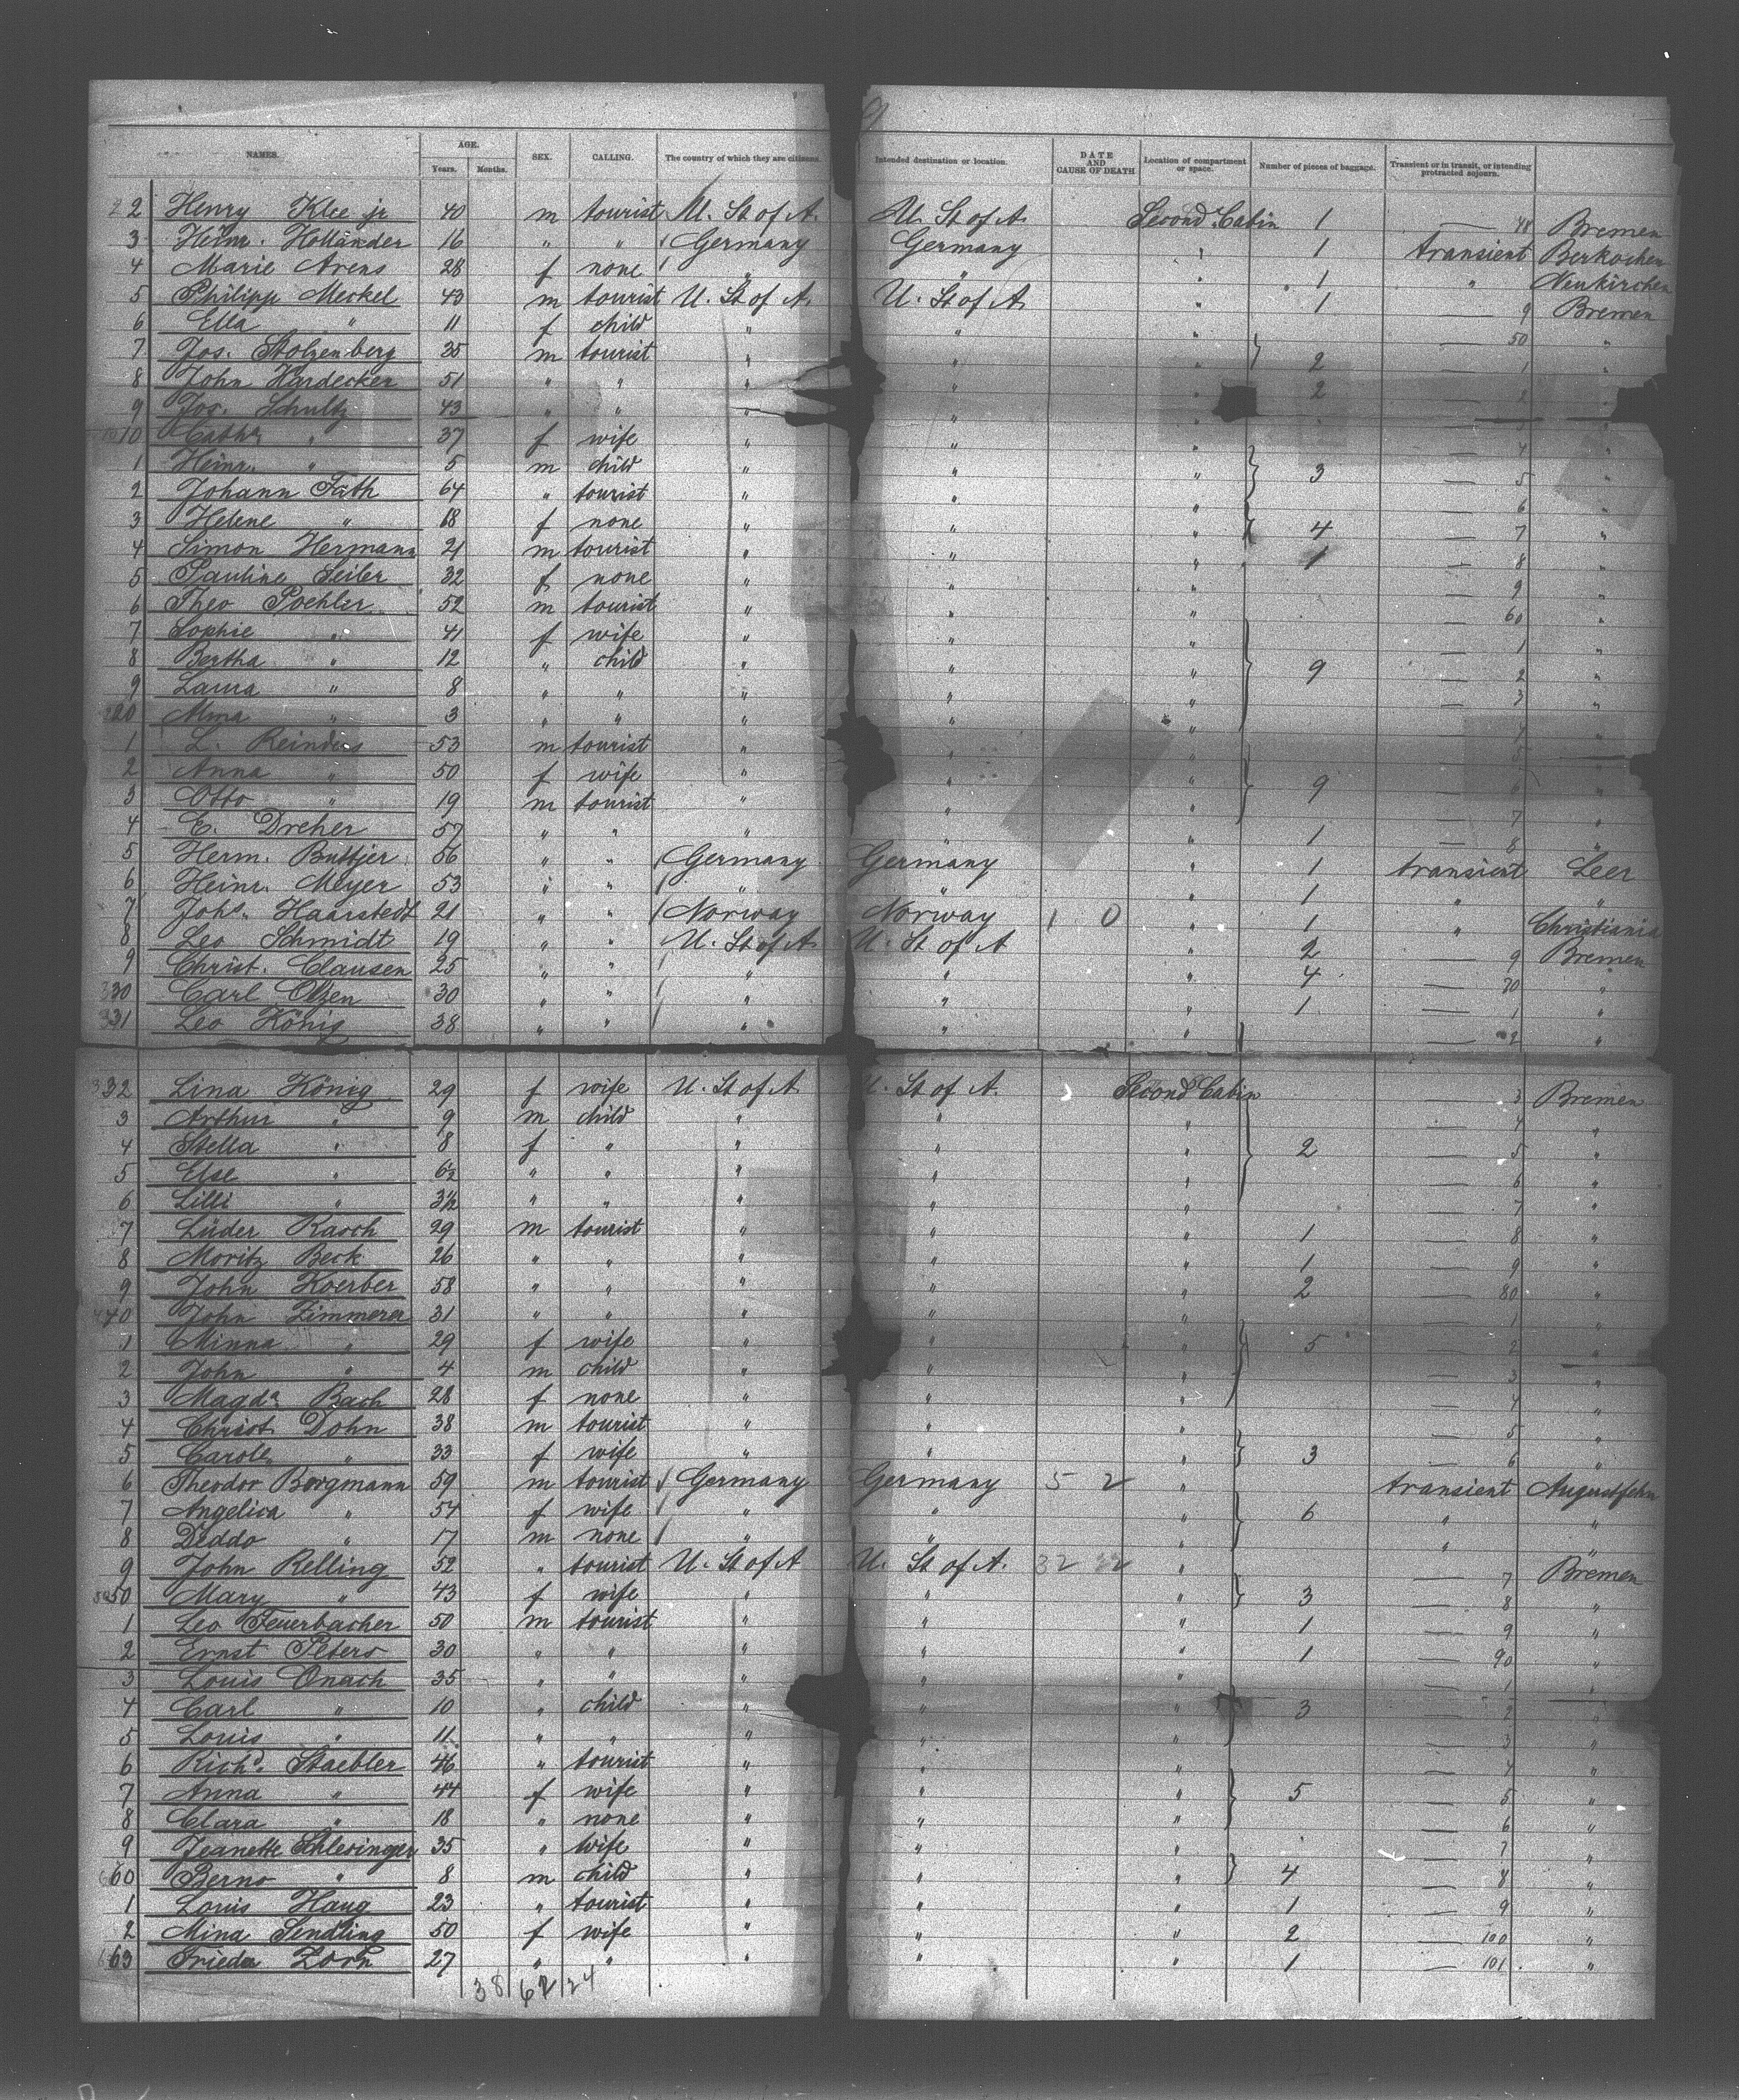 NAMES. AGE. SEX. CALLING. The country of which they are citizens. Intended destination or location. DATE AND CAUSE OF DEATH Location of compartment or space. Number of pieces of baggage. Transient or in transit, or intending protracted sojourn.
Years. Months.
2 Henry Klee jr 40 m tourist U. St of A. U. St of A. Second Cabin 1 — 48 Bremen
3 Heinr. Holländer 16 " " Germany Germany " 1 transient Berkochen
4 Marie Arens 28 f none " " " 1 " Neukirchen
5 Philipp Meckel 43 m tourist U. St of A. U. St of A. " 1 — 9 Bremen
6 Ella " 11 f child " " " — 50 "
7 Jos. Stolzenberg 35 m tourist " " " 2 — 1 "
8 John Hardecker 51 " " " " " 2 — 2 "
9 Jos. Schultz 43 " " " " " — 3 "
10 Catha " 37 f wife " " " — 4 "
1 Heinr. " 5 m child " " " 3 — 5 "
2 Johann Fath 64 " tourist " " " — 6 "
3 Helene " 18 f none " " " 4 — 7 "
4 Simon Hermann 21 m tourist " " " 1 — 8 "
5 Pauline Seiler 32 f none " " " — 9 "
6 Theo Poehler 52 m tourist " " " — 60 "
7 Sophie " 41 f wife " " " — 1 "
8 Bertha " 12 " child " " " 9 — 2 "
9 Laura " 8 " " " " " — 3 "
20 Alma " 3 " " " " " — 4 "
1 L. Reinders 53 m tourist " " " — 5 "
2 Anna " 50 f wife " " " 9 — 6 "
3 Otto " 19 m tourist " " " — 7 "
4 E. Dreher 57 " " " " " 1 — 8 "
5 Herm. Buttjer 56 " " Germany Germany " 1 transient Leer
6 Heinr. Meyer 53 " " " " " 1 " "
7 Johs. Haarstedt 21 " " Norway Norway 1 0 " 1 " Christiania
8 Leo Schmidt 19 " " U. St of A U. St of A " 2 — 9 Bremen
9 Christ. Clausen 25 " " " " " 4 — 70 "
330 Carl Olzen 30 " " " " " 1 — 1 "
331 Leo König 38 " " " " " — 2 "
332 Lina König 29 f wife U. St of A U. St of A. Second Cabin — 3 Bremen
3 Arthur " 9 m child " " " — 4 "
4 Stella " 8 f " " " " 2 — 5 "
5 Else " 6½ " " " " " — 6 "
6 Lilli " 3½ " " " " " — 7 "
7 Lüder Rasch 29 m tourist " " " 1 — 8 "
8 Moritz Beck 26 " " " " " 1 — 9 "
9 John Koerber 58 " " " " " 2 — 80 "
40 John Zimmerer 31 " " " " " — 1 "
1 Minna " 29 f wife " " " 5 — 2 "
2 John " 4 m child " " " — 3 "
3 Magda Bach 28 f none " " " — 4 "
4 Christ. Dohn 38 m tourist " " " — 5 "
5 Carole " 33 f wife " " " 3 — 6 "
6 Theodor Borgmann 59 m tourist Germany Germany 5 2 " transient Augustfehn
7 Angelica " 54 f wife " " " 6 " "
8 Deddo " 17 m none " " " " "
9 John Relling 52 " tourist U. St of A U. St of A. 32 " — 7 Bremen
50 Mary " 43 f wife " " " 3 — 8 "
1 Leo Feuerbacher 50 m tourist " " " 1 — 9 "
2 Ernst Peters 30 " " " " " 1 — 90 "
3 Louis Onach 35 " " " " " — 1 "
4 Carl " 10 " child " " " 3 — 2 "
5 Louis " 11 " " " " " — 3 "
6 Richd. Staebler 46 " tourist " " " — 4 "
7 Anna " 44 f wife " " " 5 — 5 "
8 Clara " 18 " none " " " — 6 "
9 Jeanette Schlesinger 35 " wife " " " — 7 "
60 Berno " 8 m child " " " 4 — 8 "
1 Louis Haug 23 " tourist " " " 1 — 9 "
2 Mina Sendling 50 f wife " " " 2 — 100 "
63 Frieda Zorn 27 " " " " " 1 — 101 "
38 62 24